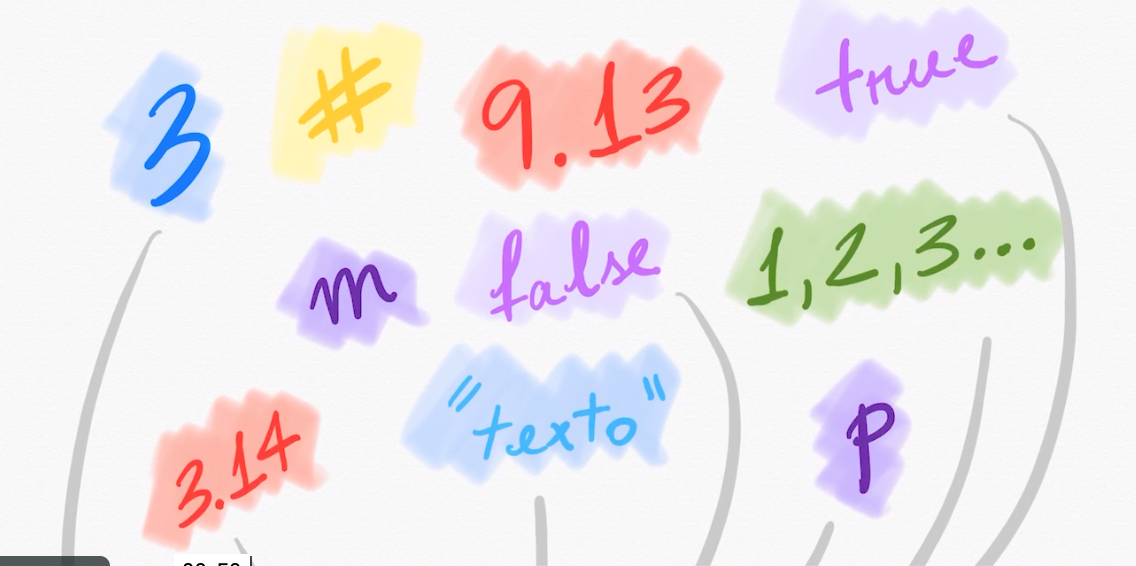 3
#
9.13
true
m
false
1,2,3...
3.14
"texto"
p